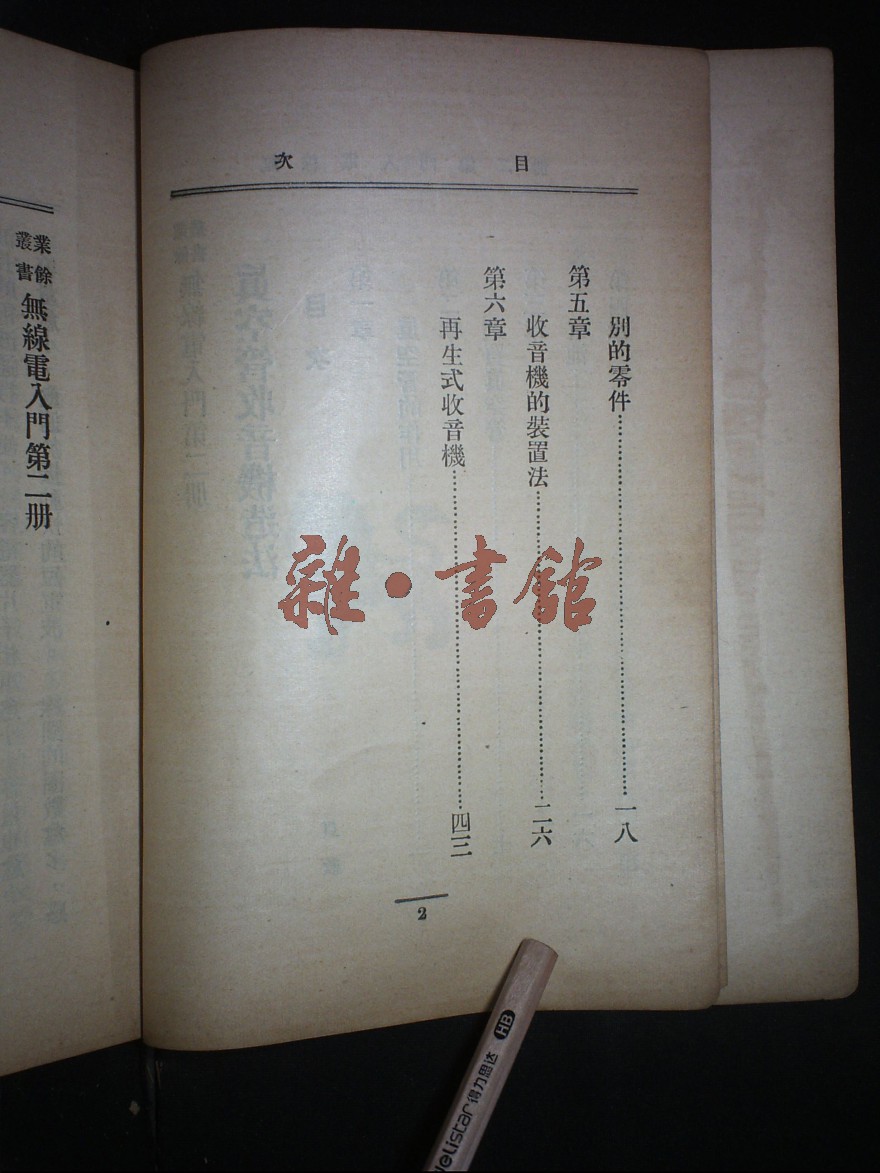 目次
別的零件……一八
第五章
收音機的裝置法……二六
第六章
再生式收音機……四三
2
業餘叢書
無線電入門第二册
雜·書館
HB
Delistar得力思达